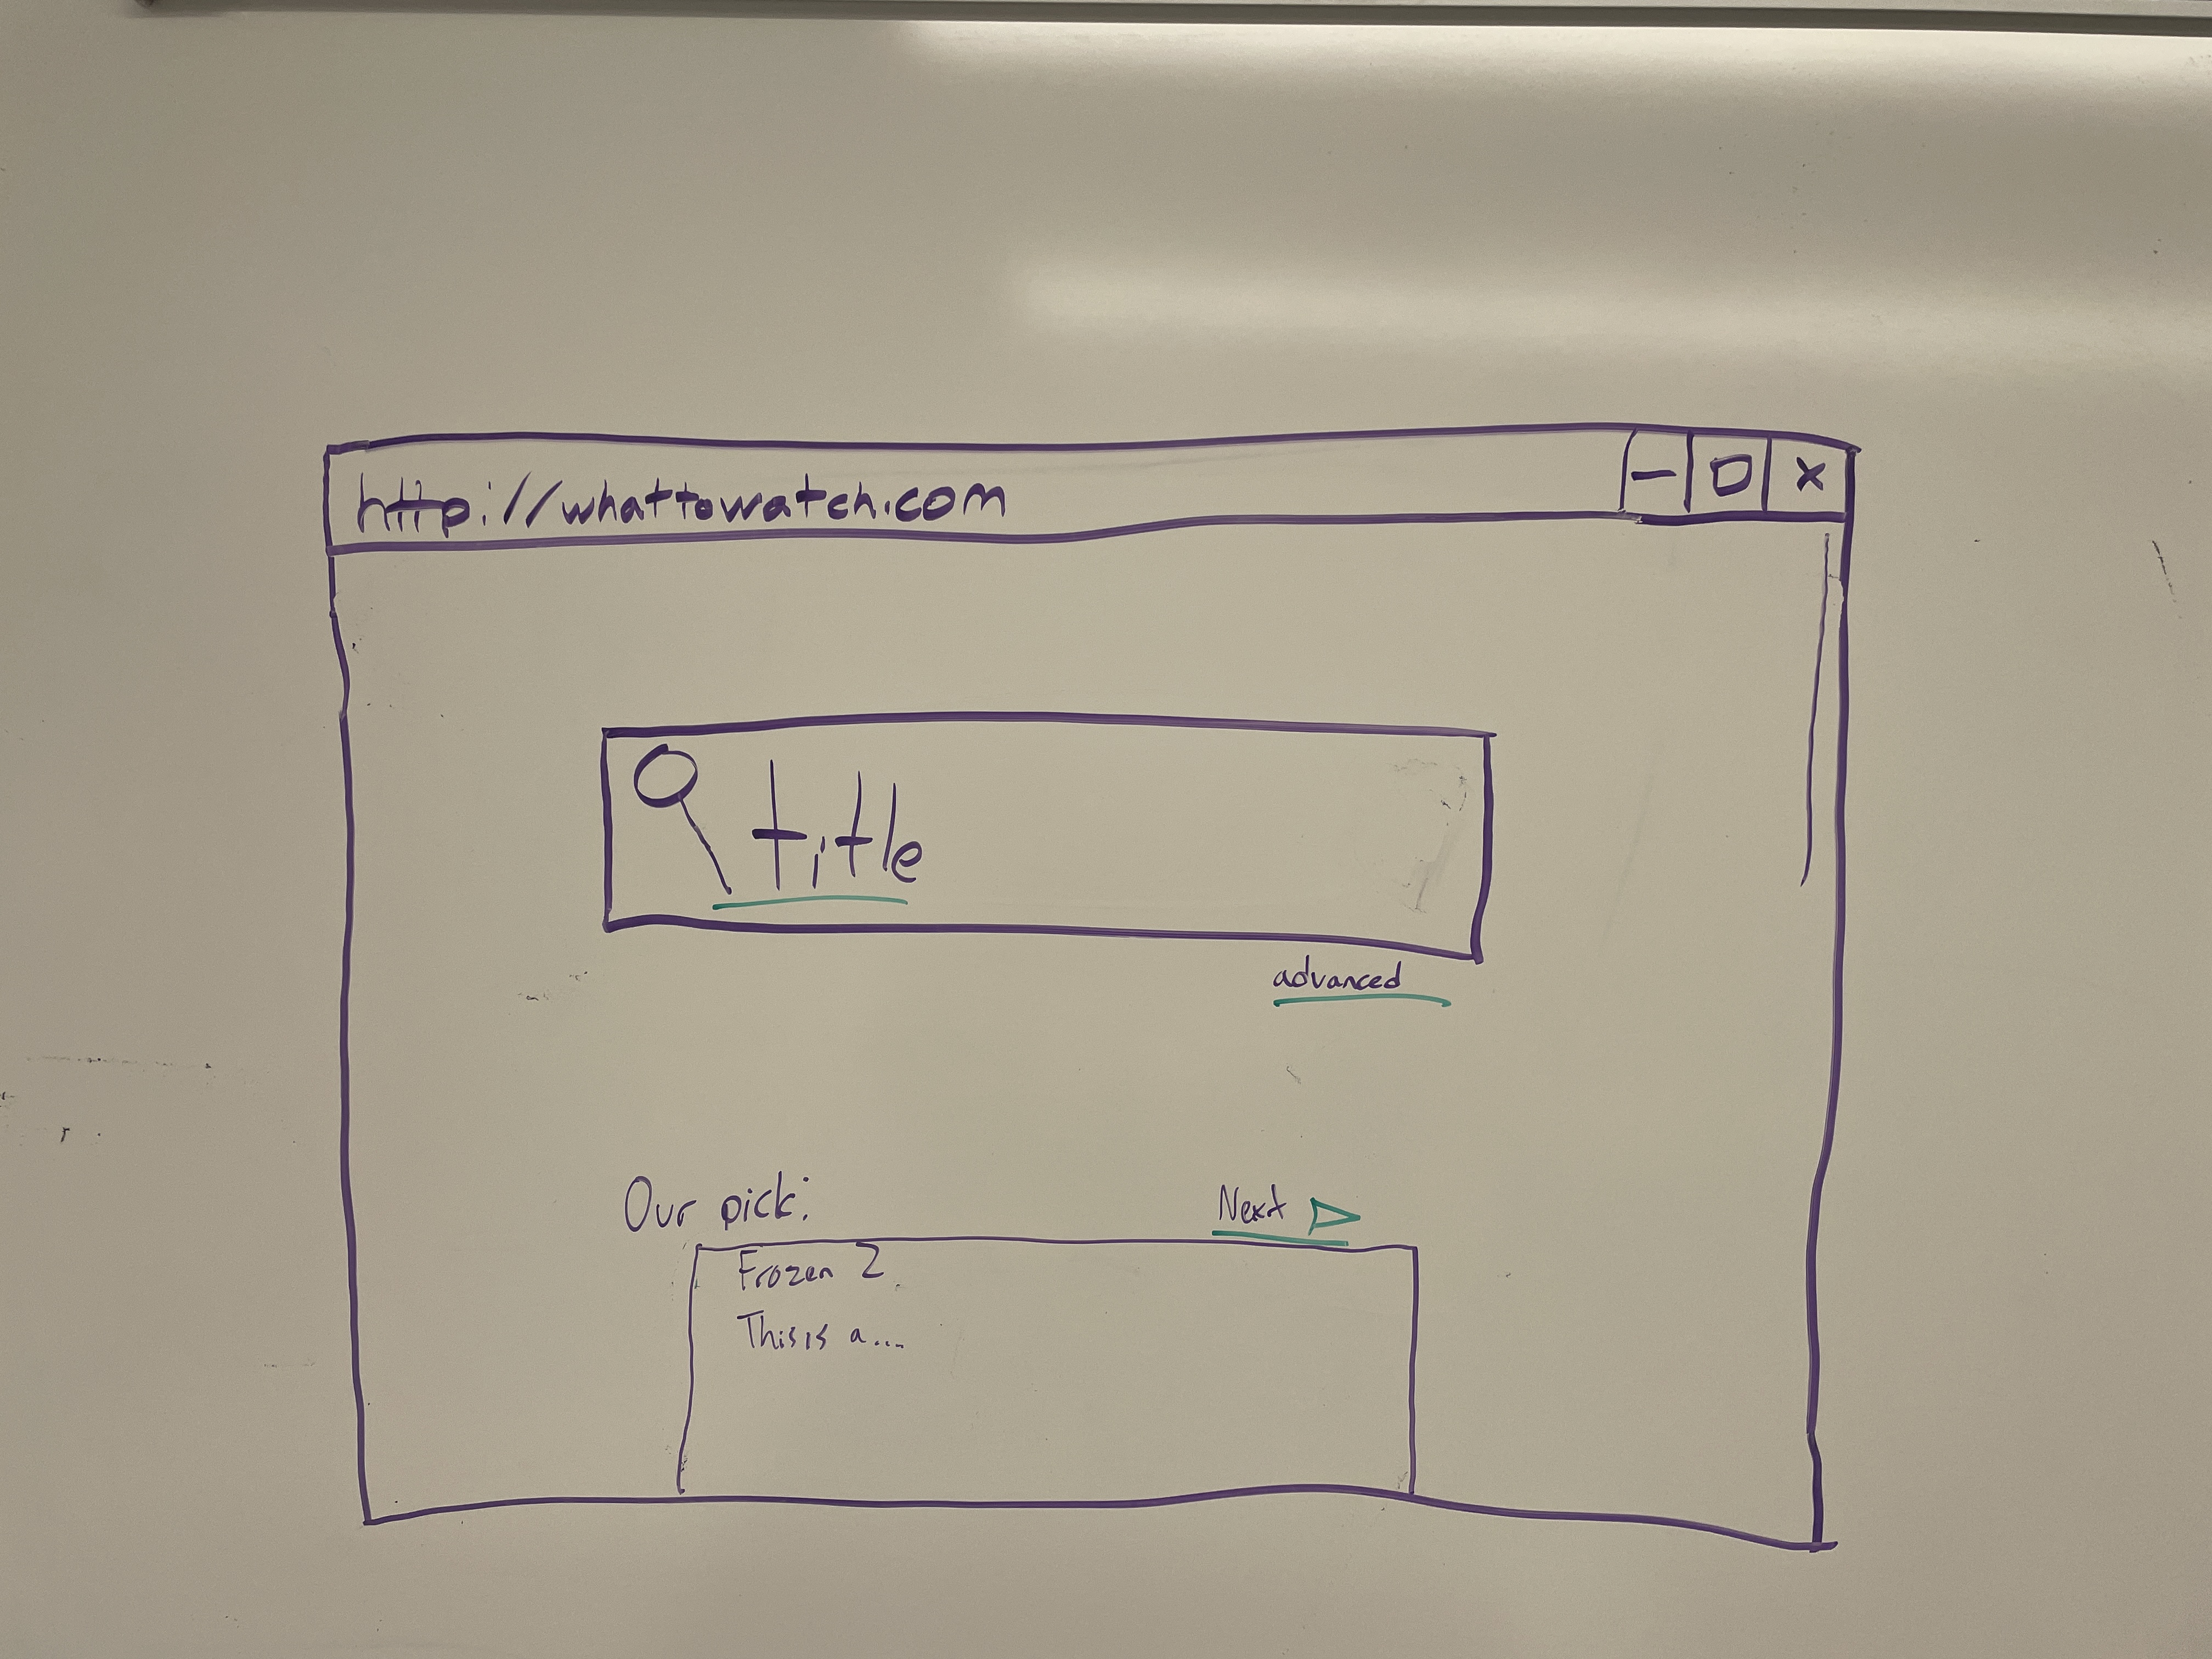 http://whattowatch.com
title
advanced
Our pick:
Next
Frozen 2
This is a...